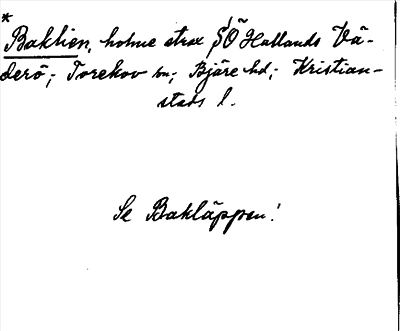 *
Baklien, holme strax SÖ Hallands Vä-
derö; Torekov sn; Bjäre hd; Kristian-
stads l.
Se Bakläppen!